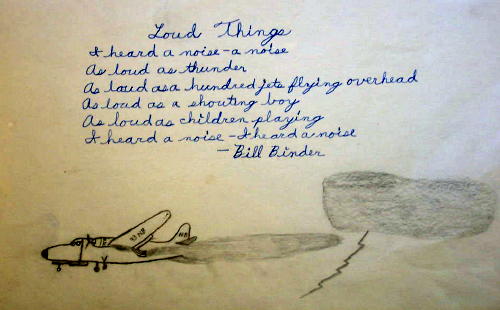 Loud Things
I heard a noise-a noise
As loud as thunder
As loud as a hundred jets flying overhead
As loud as a shouting boy
As loud as children playing
I heard a noise-I heard a noise
-Bill Binder